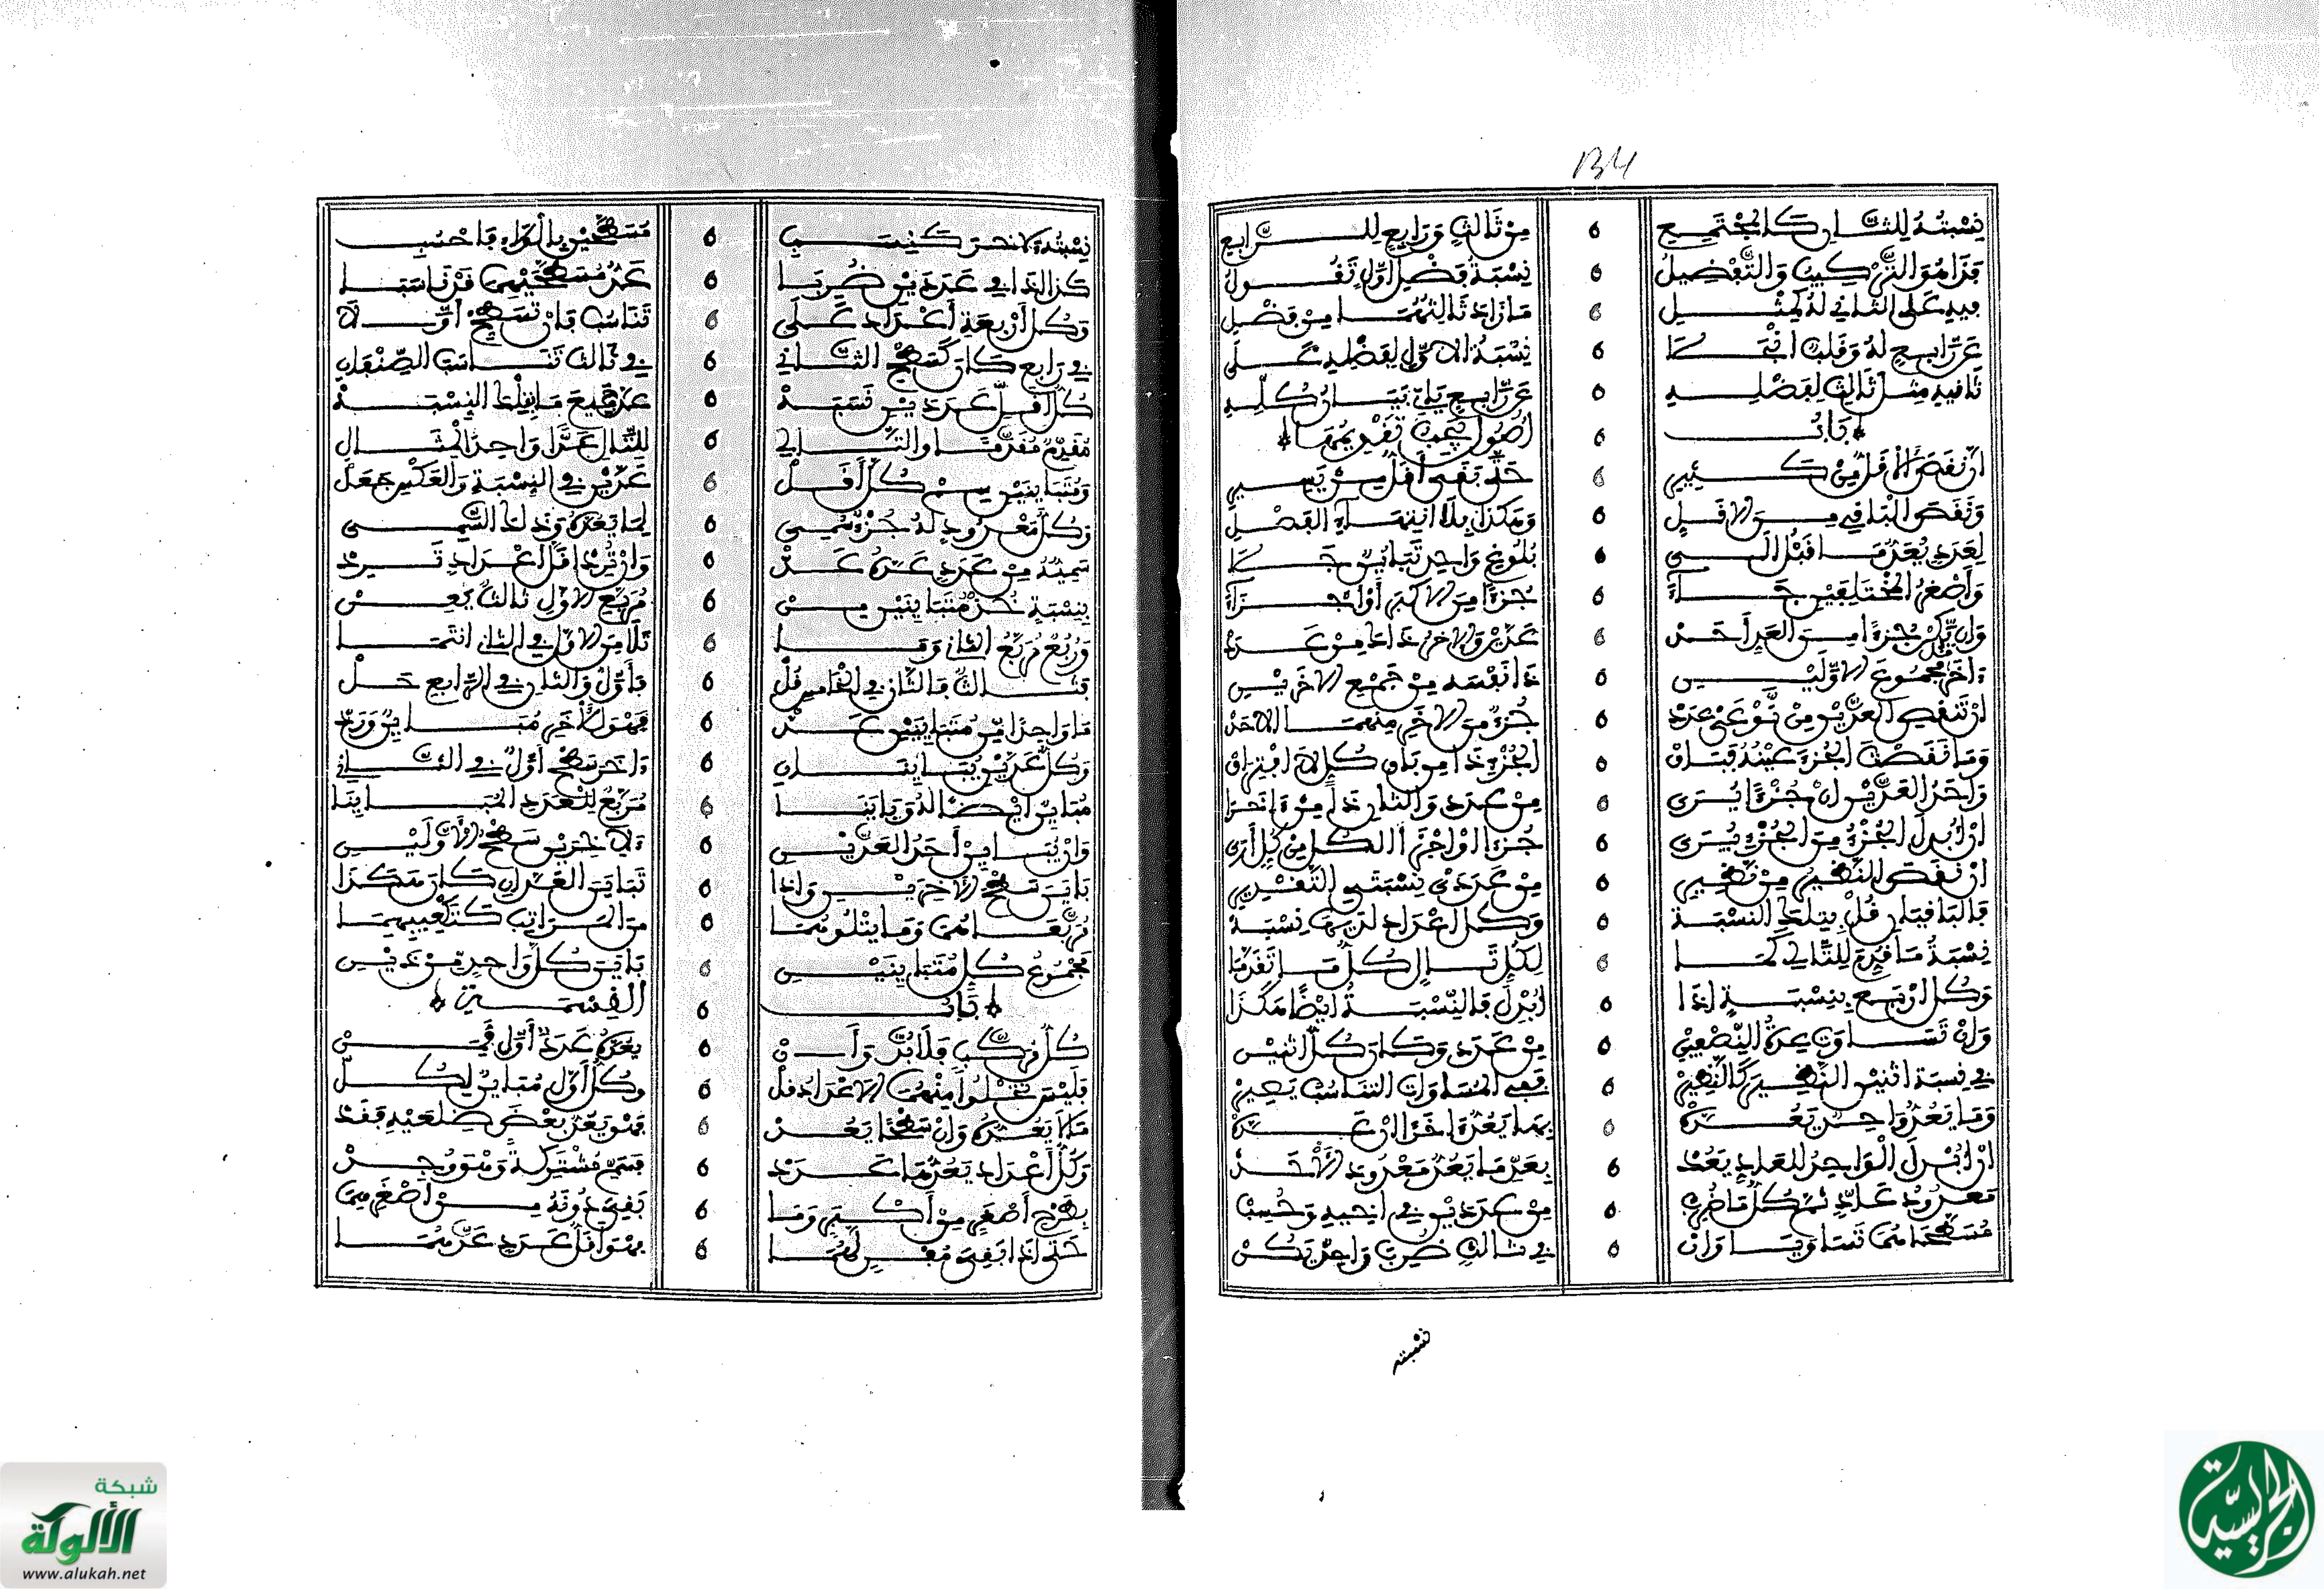 134
نِسْبَتُهُ لِلثَّانِ كَالْمُجْتَمِعِ مِنْ ثَالِثٍ وَرَابِعٍ لِلرَّابِعِ
فَذَا هُوَ التَّرْكِيبُ وَالتَّفْضِيلُ نِسْبَةُ فَضْلِ أَوَّلٍ تَقُولُ
فِيهِ عَلَى الثَّانِي لَهُ كَمِثْلِ مَا زَادَ ثَالِثُهُمَا مِنْ فَضْلِ
عَنْ رَابِعٍ لَهُ وَقَلْبٌ نِسْبَةُ الأَوَّلِ لِفَضْلِهِ عَلَى
ثَانِيهِ مِثْلُ ثَالِثٍ لِفَضْلِهِ عَنْ رَابِعٍ يَلِي بَيَانُ كُلِّهِ
بَابُ أُصُولٍ يَجِبُ تَقْدِيمُهَا
إِنْ نَقَصَ الأَقَلُّ مِنْ كَثِيرِ حَتَّى بَقِيَ أَقَلُّ مِنْ يَسِيرِ
وَنَقَصَ الْبَاقِي مِنَ الأَقَلِّ وَهَكَذَا بِلَا انْتِهَاءِ الْفَضْلِ
لِعَدَدٍ يَعُدُّ مَا قَبْلُ إِلَى بُلُوغِ وَاحِدٍ تَبَايُنٌ
وَأَصْغَرُ الْمُخْتَلِفَيْنِ جُزْءًا مِنَ الأَكْبَرِ أَوْ أَجْزَاءَ
وَإِنْ يَكُنْ جُزْءًا مِنَ الْعَدِّ أَحَدْ عَدَّيْنِ وَالآخَرُ ذَا مِنْ عَدَدْ
آخَرَ مَجْمُوعُ الأَوَّلَيْنِ ذَا نَفْسُهُ مِنْ جَمِيعِ الآخَرَيْنِ
إِنْ تَنْقُصِ الْعَدَّيْنِ مِنْ جُزْءٌ مِنَ الآخَرِ مِنْهُمَا الأَحَدْ
وَمَا نَقَصْتَ الْجُزْءَ عَنْهُ فَبَاقْ الْجُزْءِ ذَا مِنْ بَاقِ كُلٍّ لَا افْتِرَاقْ
وَأَحَدُ الْعَدَّيْنِ إِنْ جُزْءًا يُرَى مِنْ عَدَدٍ وَالثَّانِ ذَا مِنْ آخَرَا
إِنْ أُبْدِلَ الْجُزْءُ مِنَ الْجُزْءِ يُرَى جُزْءًا أَوْ أَجْزَاءَ الْكُلِّ مِنْ كُلٍّ
إِنْ نَقَصَ النَّظِيرُ مِنْ نَظِيرِ مِنْ عَدَدَيْ نِسْبَتَيِ التَّقْدِيرِ
فَالْبَاقِيَانِ قُلْ بِتِلْكَ النِّسْبَةْ وَكُلُّ أَعْدَادٍ لَدَيْهَا نِسْبَةْ
نِسْبَةُ مَا قُدِّمَ لِلتَّالِي كَمَا لِكُلِّ تَالٍ كُلُّ مَا تَقَدَّمَا
وَكُلُّ أَرْبَعٍ بِنِسْبَةٍ إِذَا أُبْدِلَ فَالنِّسْبَةُ أَيْضًا هَكَذَا
وَإِنْ تَسَاوَتْ عِدَّةُ النِّصْفَيْنِ مِنْ عَدَدٍ وَكَانَ كُلُّ اثْنَيْنِ
فِي نِسْبَةِ اثْنَيْنِ النَّظِيرُ كَالنَّظِيرْ فَفِي الْمُسَاوَاتِ التَّنَاسُبُ يَصِيرْ
وَمَا يَعُدُّ وَاحِدٌ يَعُدُّهُ بِمَا يَعُدُّ آخَرًا إِنْ عَدَّهُ
إِنْ أُبْدِلَ الْوَاحِدُ لِلْعَادِّ يَعُدْ بِعَدِّ مَا يَعُدُّ مَعْدُودَ الأَحَدْ
مَعْدُودُ عَادٍّ ثُمَّ كُلُّ مَا ضُرِبْ مِنْ عَدَدَيْنِ فِي أَخِيهِ وَحُسِبْ
مُسَطَّحَاهُمَا تَسَاوَيَا وَإِنْ فِي ثَالِثٍ ضُرِبَ وَاحِدٌ يَكُنْ
نسبته
نِسْبَتُهُ لِآخَرَ كَنِسْبَةِ مُسَطَّحَيْنِ بِالْوَلَاءِ فَاحْسُبِ
كَذَا إِذَا فِي عَدَدَيْنِ ضُرِبَا عَدٌّ مُسَطَّحَيْهِمَا قَدْ نَاسَبَا
وَكُلُّ أَرْبَعَةِ أَعْدَادٍ عَلَى تَنَاسُبٍ فَإِنْ تُسَطِّحْ أَوَّلَا
فِي رَابِعٍ كَانَ كَسَطْحِ الثَّانِي فِي ثَالِثٍ تَنَاسَبَ الصِّنْفَانِ
كُلُّ أَقَلِّ عَدَدَيْنِ نِسْبَةْ عَدَّ جَمِيعَ مَا بِتِلْكَ النِّسْبَةْ
مُقَدَّمٌ مُقَدَّمًا وَالتَّالِي لِلتَّالِ عَدًّا وَاحِدَ الْمِثَالِ
وَمُتَبَايِنَيْنِ سِمْ كُلَّ أَقَلْ عَدَّيْنِ فِي النِّسْبَةِ وَالْعَكْسُ جُعِلْ
وَكُلُّ مَعْدُودٍ لَهُ جُزْءٌ سَمِيْ لِمَا يَعُدُّهُ وَذَلِكَ السَّمِيْ
سَمِيُّهُ مِنْ عَدَدٍ عَدَّهُ عَدْ وَإِنْ تُرِدْ أَقَلَّ أَعْدَادٍ تَرِدْ
بِنِسْبَةٍ خُذْ مُتَبَايِنَيْنِ مِنْ مُرَبَّعُ الأَوَّلِ ثَالِثٌ يَعِنْ
وَرُبِّعَ مُرَبَّعُ الثَّانِي وَمَا تَلَا مِنَ الأَوَّلِ فِي الثَّانِ انْتَمَى
فَثَالِثٌ فَالثَّانِ فِي الْخَامِسِ قُلْ فَأَوَّلٌ وَالثَّانِ فِي الرَّابِعِ حَلْ
مَا وَاحِدًا مِنْ مُتَبَايِنَيْنِ عَدْ فَهْوَ لِآخَرٍ مُبَايِنٌ وَرَدْ
وَكُلُّ عَدَّيْنِ يُبَايِنَانِ آخَرَ سَطْحُ أَوَّلٍ فِي الثَّانِي
مُبَايِنٌ أَيْضًا لَهُ وَبَايَنَا مُرَبَّعٌ لِلْعَدَدِ الْمُبَايِنَا
وَإِنْ يُبَايِنْ أَحَدُ الْعَدَّيْنِ الآخَرَيْنِ سَطْحُ الأَوَّلَيْنِ
بَايَنَ سَطْحَ الآخَرَيْنِ وَإِذَا تَبَايَنَ الْعَدَّانِ كَانَ هَكَذَا
مُرَبَّعَاهُمَا وَمَا يَتْلُوهُمَا مِنَ الْمَرَاتِبِ كَتَكْعِيبِهِمَا
مَجْمُوعُ كُلِّ مُتَبَايِنَيْنِ بَايَنَ كُلَّ وَاحِدٍ مِنْ ذَيْنِ
بَابُ الْقِسْمَةِ
كُلُّ مُرَكَّبٍ فَلَا بُدَّ وَأَنْ يَعُدَّهُ عَدَدٌ أَوَّلٌ قَمِنْ
فَلَيْسَ تَخْلُو مِنْهُمَا الأَعْدَادُ قُلْ وَكُلُّ أَوَّلٍ مُبَايِنٌ لِكُلْ
مَا لَا يَعُدُّهُ وَإِنْ سَطْحًا يَعُدْ فَهْوَ يَعُدُّ بَعْضَ ضِلْعَيْهِ فَقَدْ
وَكُلُّ أَعْدَادٍ يَعُدُّهَا عَدَدْ فَسَمِّ مُشْتَرِكَةً وَهْوَ وُجِدْ
بِطَرْحِ أَصْغَرٍ مِنْ أَكْبَرٍ وَمَا بَقِيَ دُونَهُ مِنْ أَصْغَرٍ
حَتَّى إِذَا بَقِيَ مُفْنٍ لَهُمَا فَهْوَ أَقَلُّ عَدَدٍ عَدَّهُمَا
شبكة
الألوكة
www.alukah.net